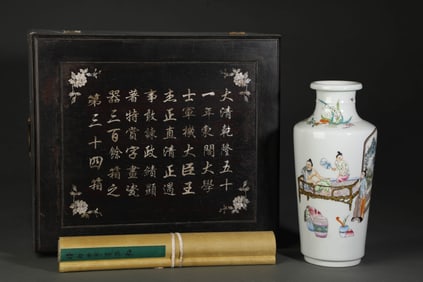 大清乾隆五十
一年東閣大學
士軍機大臣王
杰正直清正遇
事敢諫政績顯
著特賞字畫瓷
器三百餘箱之
第三十四箱